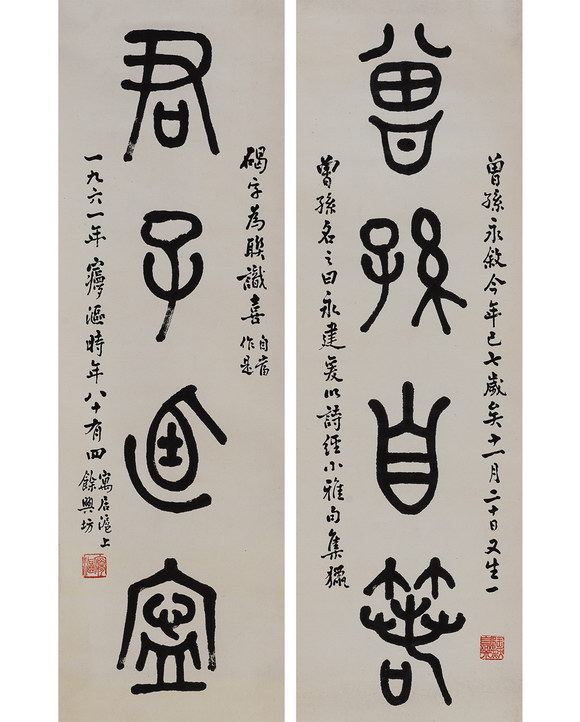 曾孫自若
曾孫永敘今年已七歲矣十一月二十日又生一
曾孫名之曰永建爰以詩經小雅句集獵
君子逌寧
碣字為聯識喜
自當
作是
一九六一年㝱漚時年八十有四
寓居滬上
餘興坊